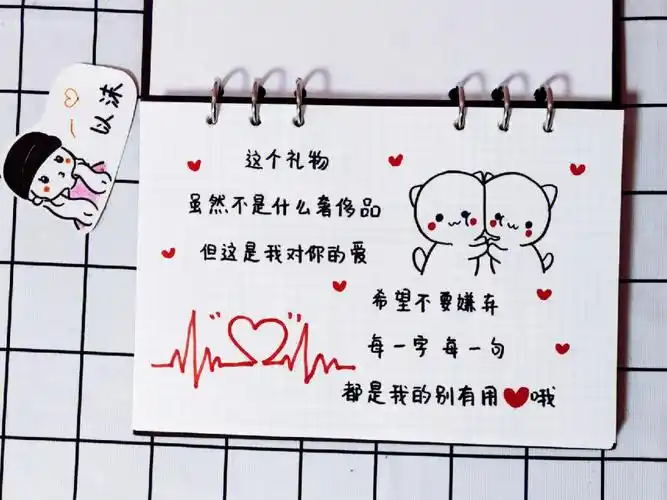 以沫
这个礼物
虽然不是什么奢侈品
但这是我对你的爱
希望不要嫌弃
每一字 每一句
都是我的别有用❤哦